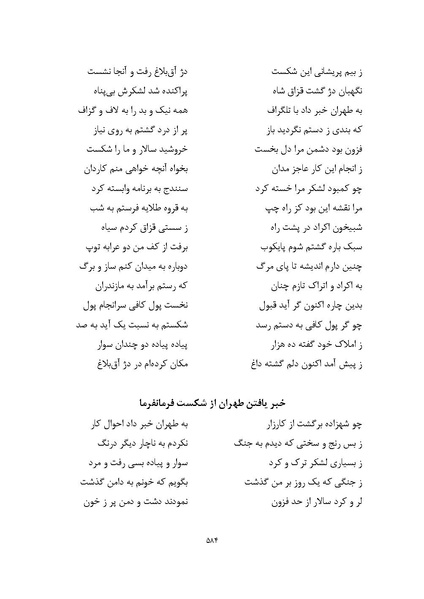 ز بیم پریشانی این شکست دژ آق‌بلاغ رفت و آنجا نشست
نگهبان دژ گشت قزاق شاه پراکنده شد لشکرش بی‌پناه
به طهران خبر داد با تلگراف همه نیک و بد را به لاف و گزاف
که بندی ز دستم نگردید باز پر از درد گشتم به روی نیاز
فزون بود دشمن مرا دل بخست خروشید سالار و ما را شکست
ز انجام این کار عاجز مدان بخواه آنچه خواهی منم کاردان
چو کمبود لشکر مرا خسته کرد سنندج به برنامه وابسته کرد
مرا نقشه این بود کز راه چپ به قروه طلایه فرستم به شب
شبیخون اکراد در پشت راه ز سستی قزاق کردم سیاه
سبک باره گشتم شوم پایکوب برفت از کف من دو عرابه توپ
چنین دارم اندیشه تا پای مرگ دوباره به میدان کنم ساز و برگ
به اکراد و اتراک تازم چنان که رستم برآمد به مازندران
بدین چاره اکنون گر آید قبول نخست پول کافی سرانجام پول
چو گر پول کافی به دستم رسد شکستم به نسبت یک آید به صد
ز املاک خود گفته ده هزار پیاده پیاده دو چندان سوار
ز پیش آمد اکنون دلم گشته داغ مکان کرده‌ام در دژ آق‌بلاغ
خبر یافتن طهران از شکست فرمانفرما
چو شهزاده برگشت از کارزار به طهران خبر داد احوال کار
ز بس رنج و سختی که دیدم به جنگ نکردم به ناچار دیگر درنگ
ز بسیاری لشکر ترک و کرد سوار و پیاده بسی رفت و مرد
ز جنگی که یک روز بر من گذشت بگویم که خونم به دامن گذشت
لر و کرد سالار از حد فزون نمودند دشت و دمن پر ز خون
۵۸۴